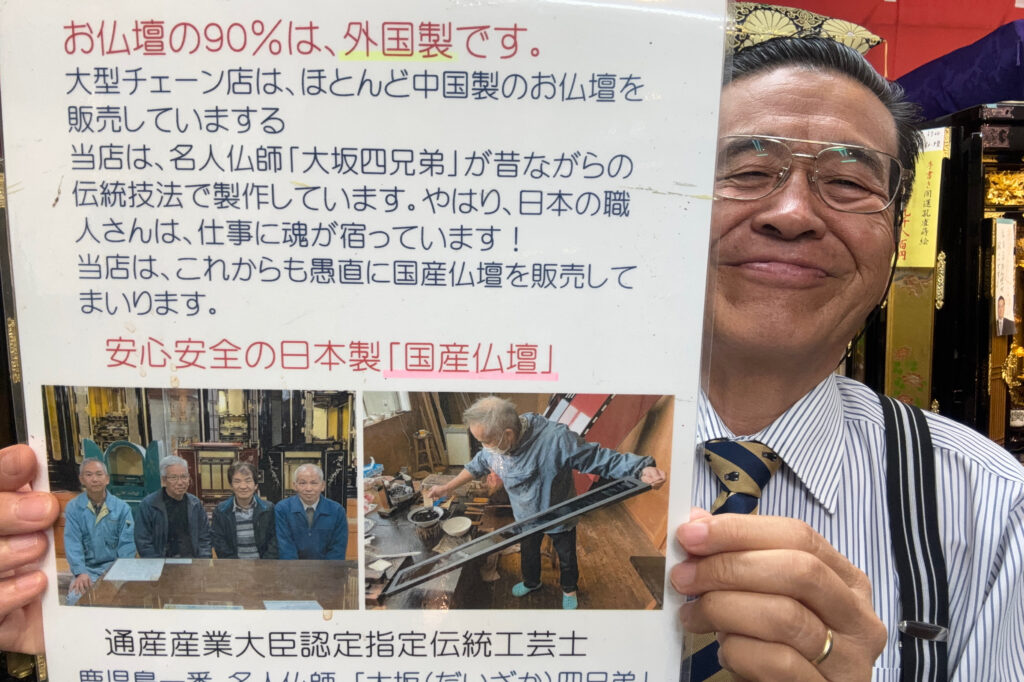 お仏壇の90%は、外国製です。
大型チェーン店は、ほとんど中国製のお仏壇を
販売していまする
当店は、名人仏師「大坂四兄弟」が昔ながらの
伝統技法で製作しています。やはり、日本の職
人さんは、仕事に魂が宿っています！
当店は、これからも愚直に国産仏壇を販売して
まいります。
安心安全の日本製「国産仏壇」
通産産業大臣認定指定伝統工芸士
鹿児島一番 名人仏師 「大坂(だいざか)四兄弟」
手書き開運孔雀蒔絵